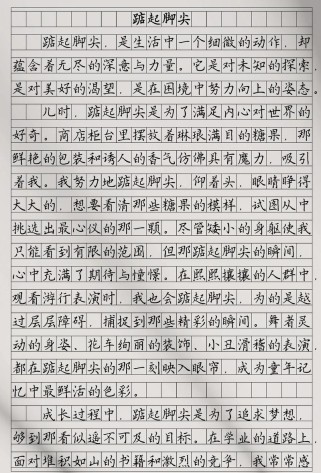 踮起脚尖
踮起脚尖，是生活中一个细微的动作，却
蕴含着无尽的深意与力量。它是对未知的探索，
是对美好的渴望，是在困境中努力向上的姿态。
儿时，踮起脚尖是为了满足内心对世界的
好奇。商店柜台里摆放着琳琅满目的糖果，那
鲜艳的包装和诱人的香气仿佛具有魔力，吸引
着我。我努力地踮起脚尖，仰着头，眼睛睁得
大大的，想要看清那些糖果的模样，试图从中
挑选出最心仪的那一颗。尽管矮小的身躯使我
只能看到有限的范围，但那踮起脚尖的瞬间，
心中充满了期待与憧憬。在熙熙攘攘的人群中，
观看游行表演时，我也会踮起脚尖，为的是越
过层层障碍，捕捉到那些精彩的瞬间。舞者灵
动的身姿、花车绚丽的装饰、小丑滑稽的表演，
都在踮起脚尖的那一刻映入眼帘，成为童年记
忆中最鲜活的色彩。
成长过程中，踮起脚尖是为了追求梦想，
够到那看似遥不可及的目标。在学业的道路上，
面对堆积如山的书籍和激烈的竞争，我常常感